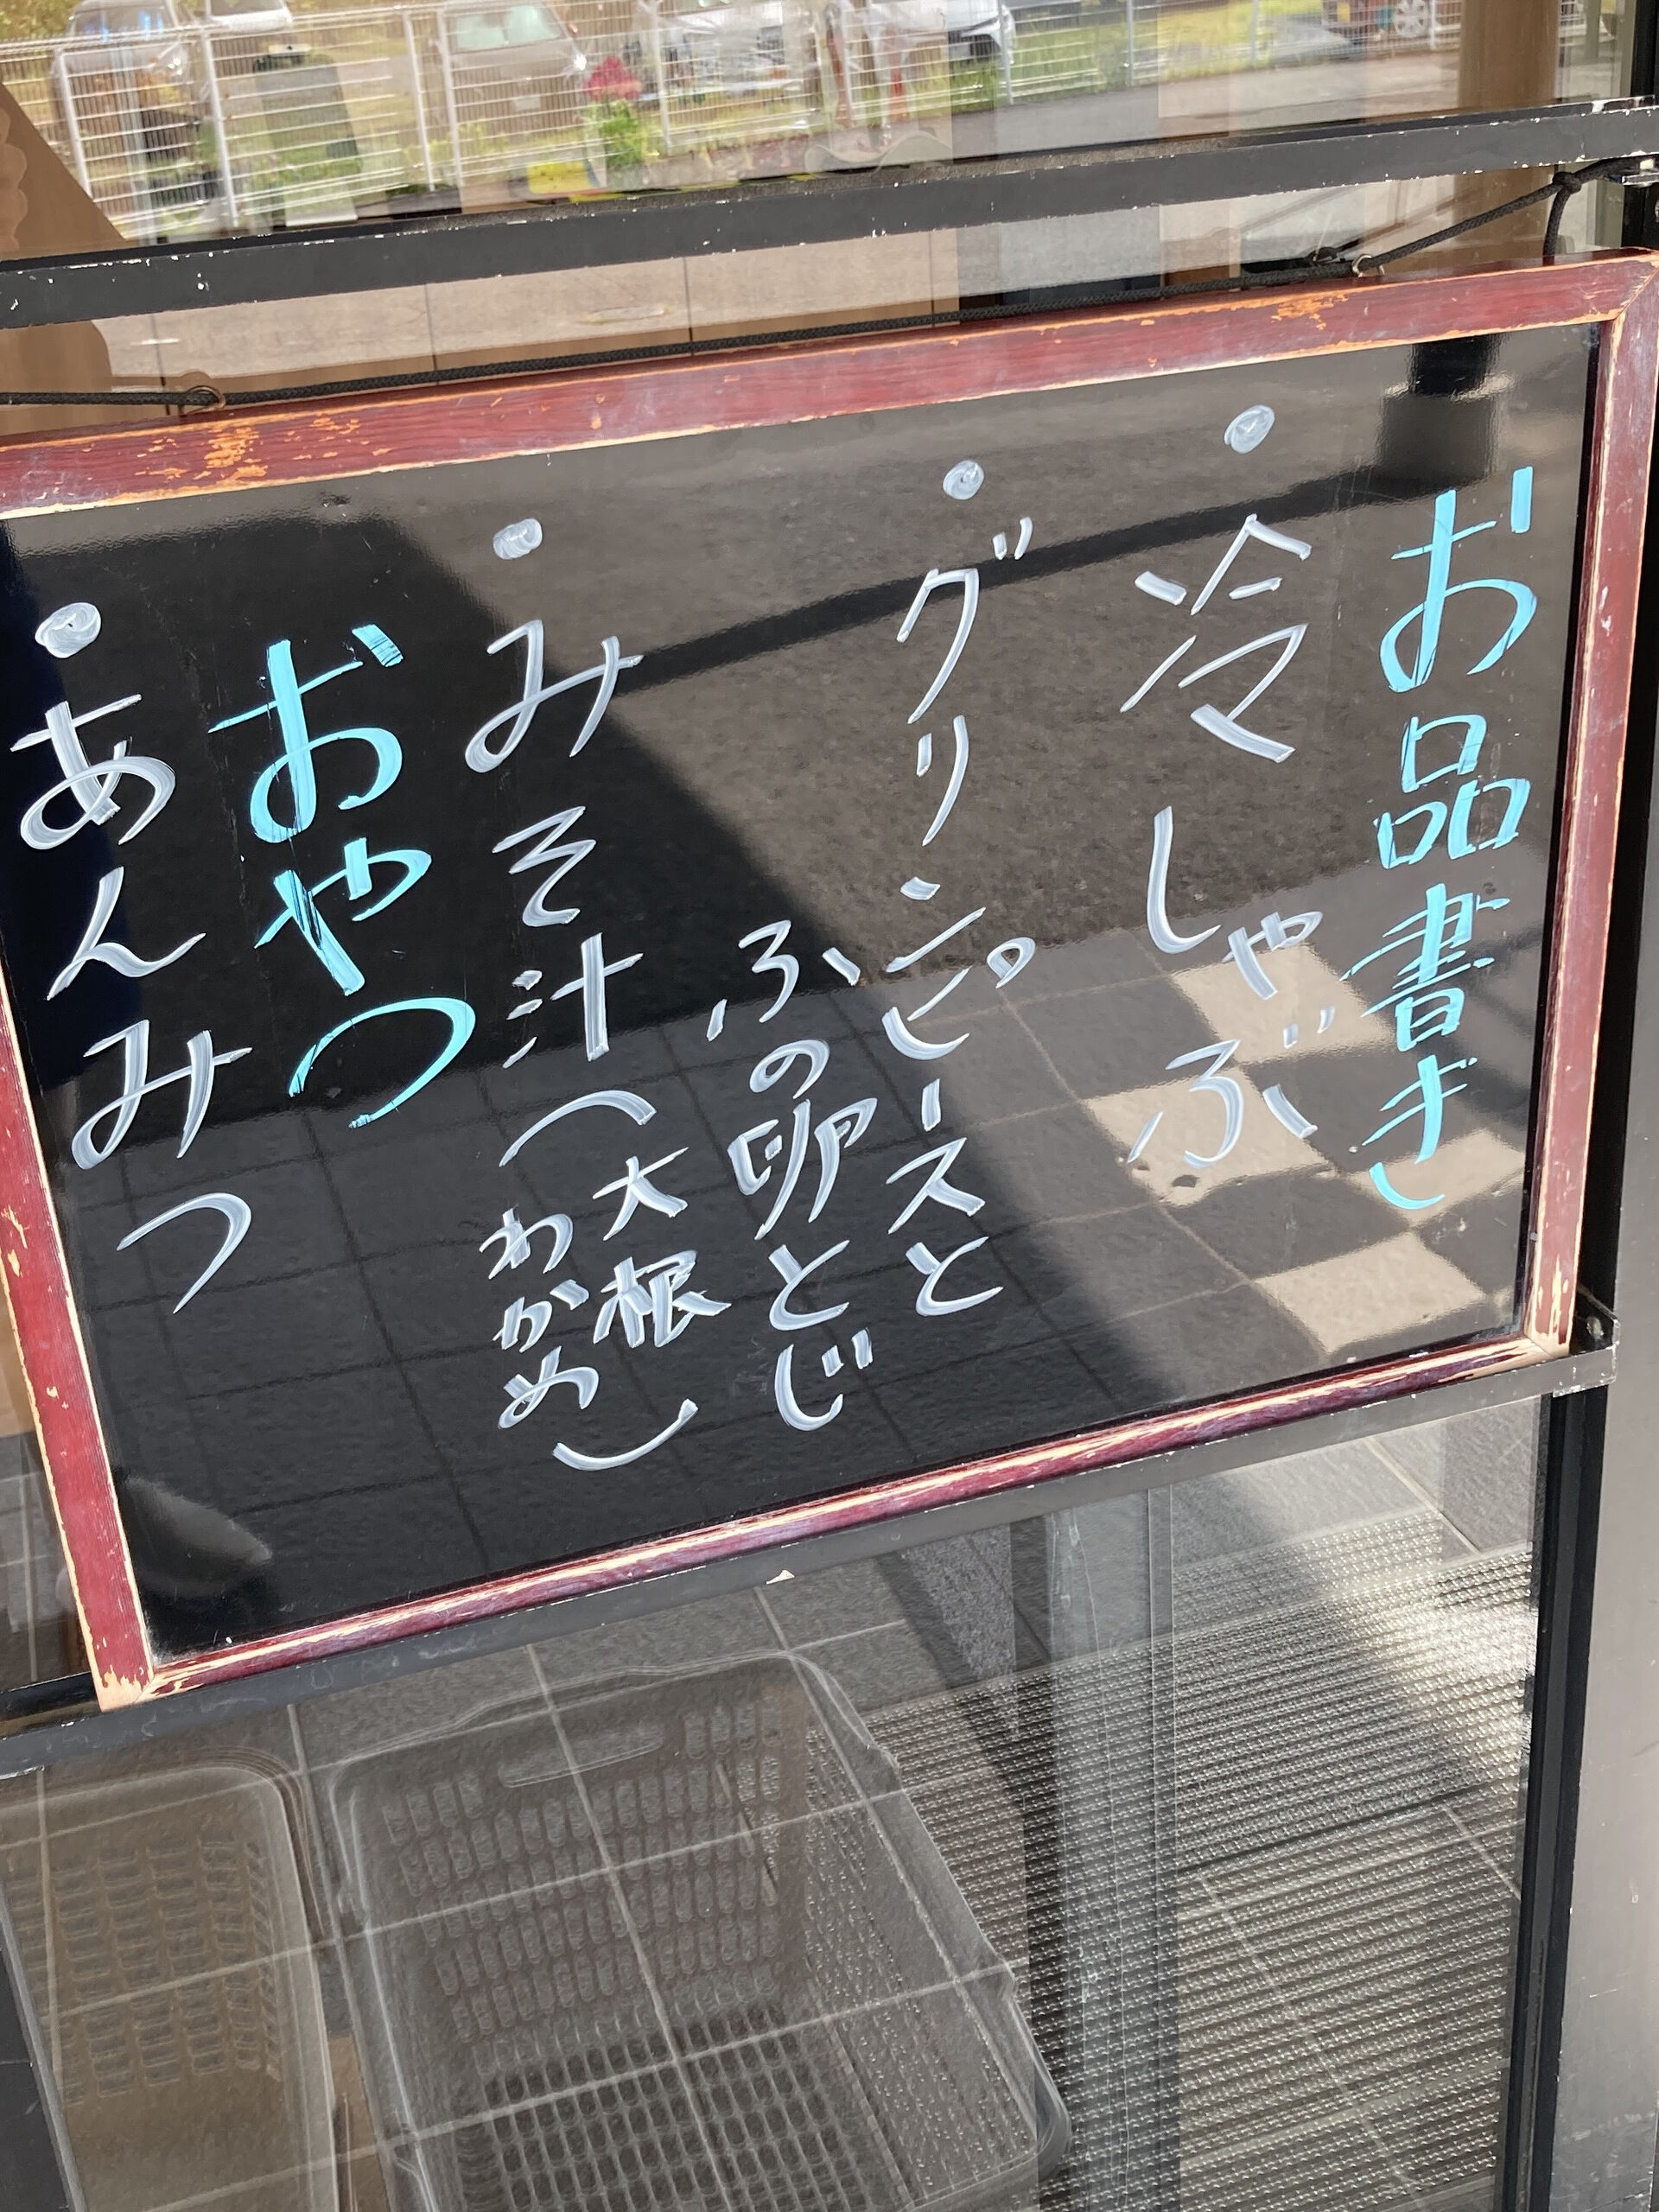 お品書き
・冷しゃぶ
・グリンピースと
ふの卵とじ
・みそ汁(大根
わかめ)
おやつ
・あんみつ